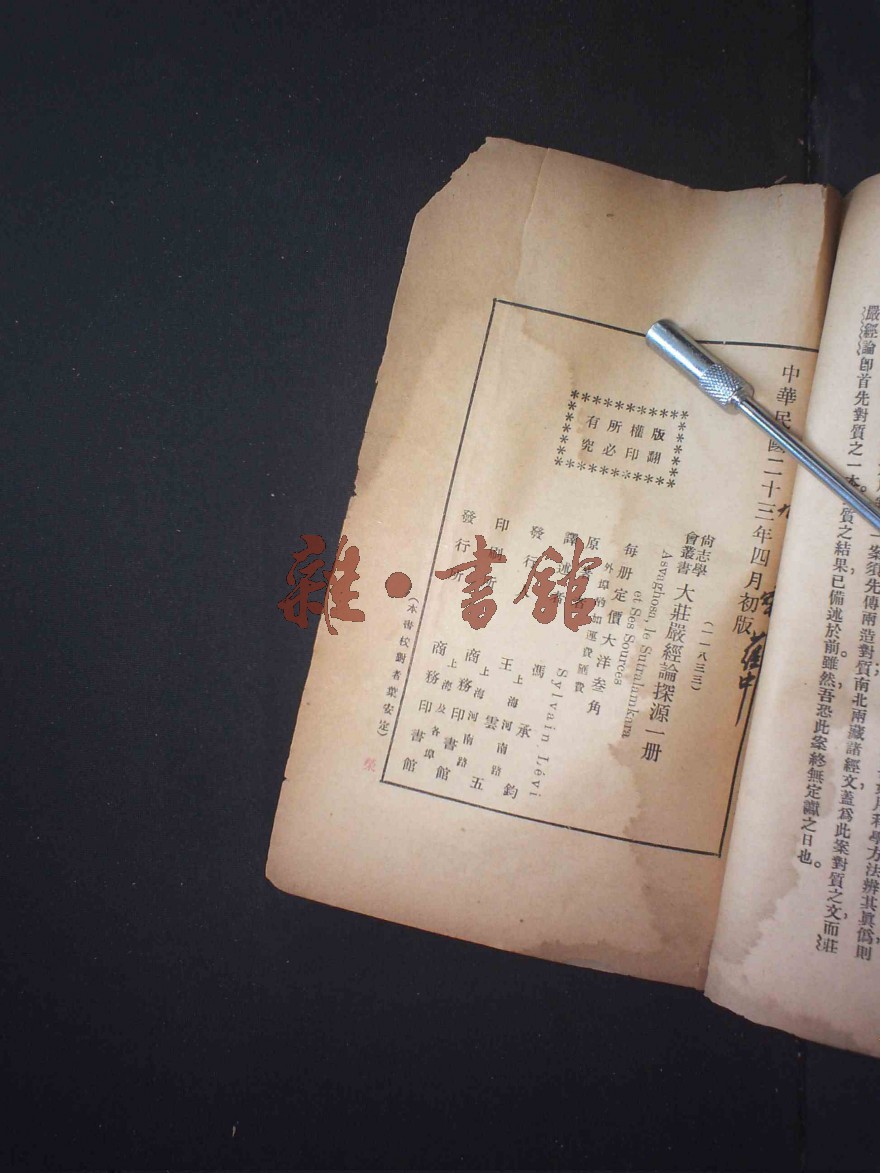 嚴經論卽首先對質之一本。質之結果已備述於前雖然吾恐此案終無定讞之日也。
一案須先傳兩造對質南北兩藏諸經文蓋爲此案對質之文而莊
科學方法辨其眞僞則
中華民國二十三年四月初版
(一一八三三)
尙志學會叢書
大莊嚴經論探源一册
Asvaghosa, le Sutralamkara et Ses Sources
每册定價大洋叁角
外埠酌加運費匯費
原
Sylvain Lévi
譯述者
馮承鈞
發行
王雲五
上海河南路
印刷所
商務印書館
上海河南路
發行所
商務印書館
上海及各埠
版權所有
翻印必究
(本書校對者葉安定)
榮
雜·書館